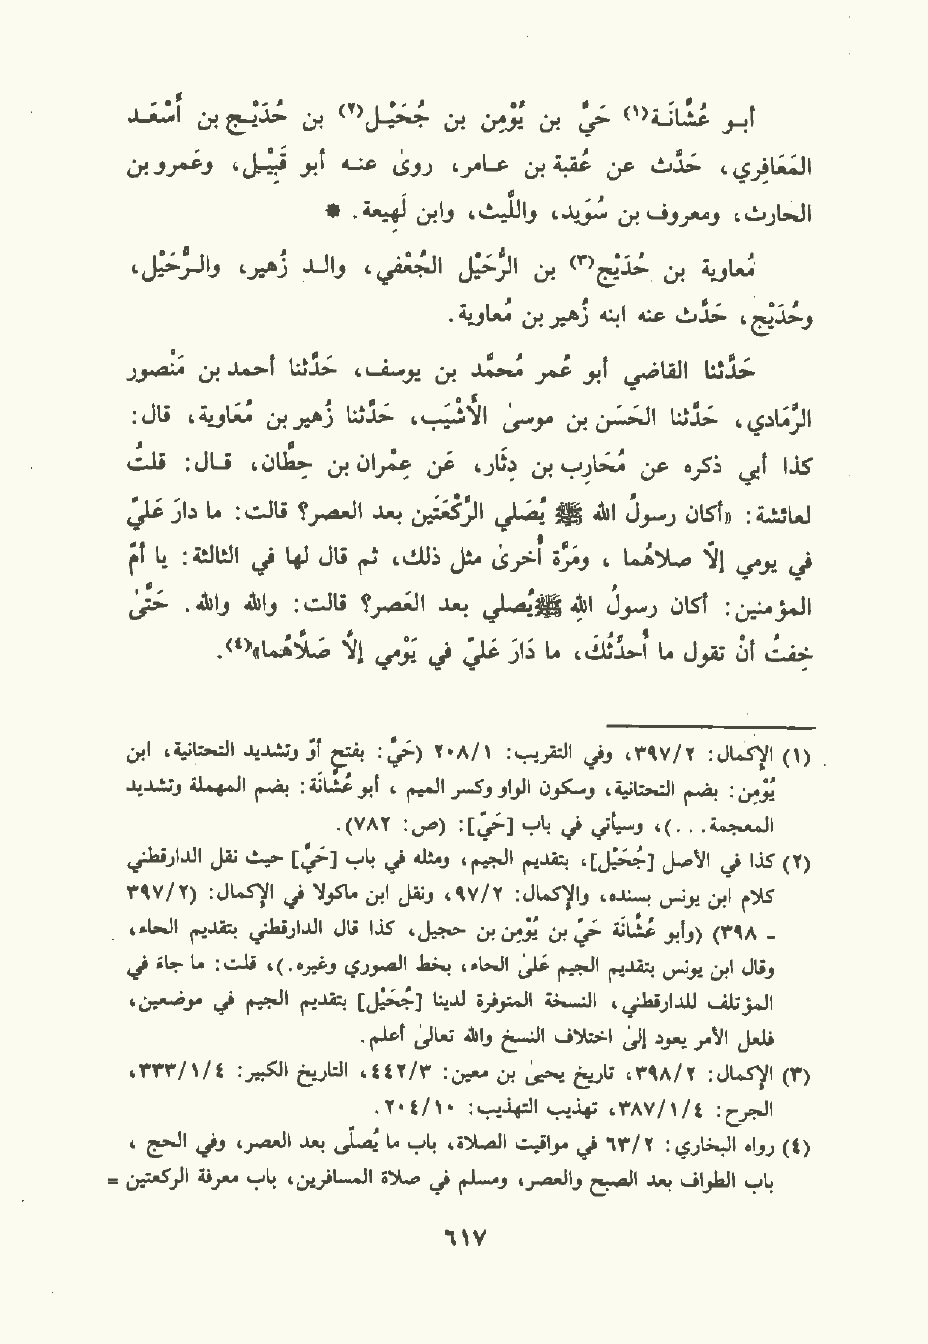 أبو عُشَّانَة(١) حَيُّ بن يُؤْمِن بن جُحَيْل(٢) بن حُدَيْج بن أَسْعَد
المَعَافِري، حَدَّث عن عُقبة بن عامر، روىٰ عنه أبو قَبِيْل، وعَمرو بن
الحارث، ومعروف بن سُوَيد، واللَّيث، وابن لَهِيعة. *
مُعاوية بن حُدَيْج(٣) بن الرُّحَيْل الجُعْفي، والد زُهير، والرُّحَيْل،
وحُدَيْج، حَدَّث عنه ابنه زُهير بن مُعاوية.
حَدَّثنا القاضي أبو عُمر مُحمَّد بن يوسف، حَدَّثنا أحمد بن مَنْصور
الرَّمَادي، حَدَّثنا الحَسَن بن موسىٰ الأَشْيَب، حَدَّثنا زُهير بن مُعَاوية، قال:
كذا أبي ذكره عن مُحَارب بن دِثَار، عَن عِمْران بن حِطَّان، قال: قلتُ
لعائشة: «أكان رسولُ الله ﷺ يُصَلي الرَّكْعَتَين بعد العصر؟ قالت: ما دارَ عَليَّ
في يومي إلاَّ صلاهُما، ومَرَّة أُخرىٰ مثل ذلك، ثم قال لها في الثالثة: يا أمَّ
المؤمنين: أكان رسولُ اللهِ ﷺ يُصلي بعد العَصر؟ قالت: والله والله. حَتَّىٰ
خِفتُ أنْ تقول ما أُحدِّثُكَ، ما دَارَ عَليَّ في يَوْمي إلاَّ صَلَّاهُما»(٤).
(١) الإكمال: ٣٩٧/٢، وفي التقريب: ٢٠٨/١ (حَيُّ): بفتح أوَّ وتشديد التحتانية، ابن
يُؤمِن: بضم التحتانية، وسكون الواو وكسر الميم، أبو عُشَّانَة: بضم المهملة وتشديد
المعجمة...)، وسيأتي في باب [حَيّ]: (ص: ٧٨٢).
(٢) كذا في الأصل [جُحَيْل]، بتقديم الجيم، ومثله في باب [حَيّ] حيث نقل الدارقطني
كلام ابن يونس بسنده، والإكمال: ٩٧/٢، ونقل ابن ماكولا في الإكمال: (٣٩٧/٢
ـ ٣٩٨) (وأبو عُشَّانَة حَيُّ بن يُؤْمِن بن حجيل، كذا قال الدارقطني بتقديم الحاء،
وقال ابن يونس بتقديم الجيم علىٰ الحاء، بخط الصوري وغيره.)، قلت: ما جاء في
المؤتلف للدارقطني، النسخة المتوفرة لدينا [جُحَيْل] بتقديم الجيم في موضعين،
فلعل الأمر يعود إلىٰ اختلاف النسخ والله تعالىٰ أعلم.
(٣) الإكمال: ٣٩٨/٢، تاريخ يحيىٰ بن معين: ٤٤٢/٣، التاريخ الكبير: ٣٣٣/١/٤،
الجرح: ٣٨٧/١/٤، تهذيب التهذيب: ٢٠٤/١٠.
(٤) رواه البخاري: ٦٣/٢ في مواقيت الصلاة، باب ما يُصلَّى بعد العصر، وفي الحج ،
باب الطواف بعد الصبح والعصر، ومسلم في صلاة المسافرين، باب معرفة الركعتين =
٦١٧